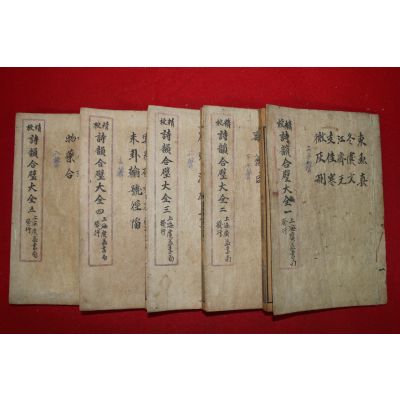 東魚真
冬虞文
江齊元
支佳寒
微灰刪
精校
詩韻合璧大全一
上海廣益書局
發行
精校
詩韻合璧大全二
上海廣益書局
發行
精校
詩韻合璧大全三
上海廣益書局
發行
未卦翰號徑
精校
詩韻合璧大全四
上海廣益書局
發行
物藥合
精校
詩韻合璧大全五
上海廣益書局
發行